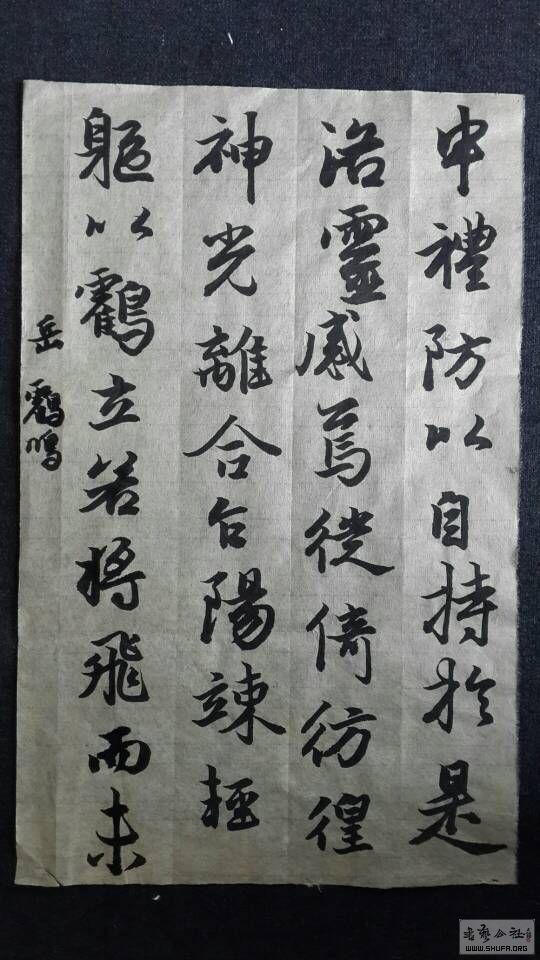 申禮防以自持於是
洛靈感焉徙倚彷徨
神光離合陽竦輕
軀以鶴立若將飛而未
岳鶴鳴
书艺公社
WWW.SHUFA.ORG